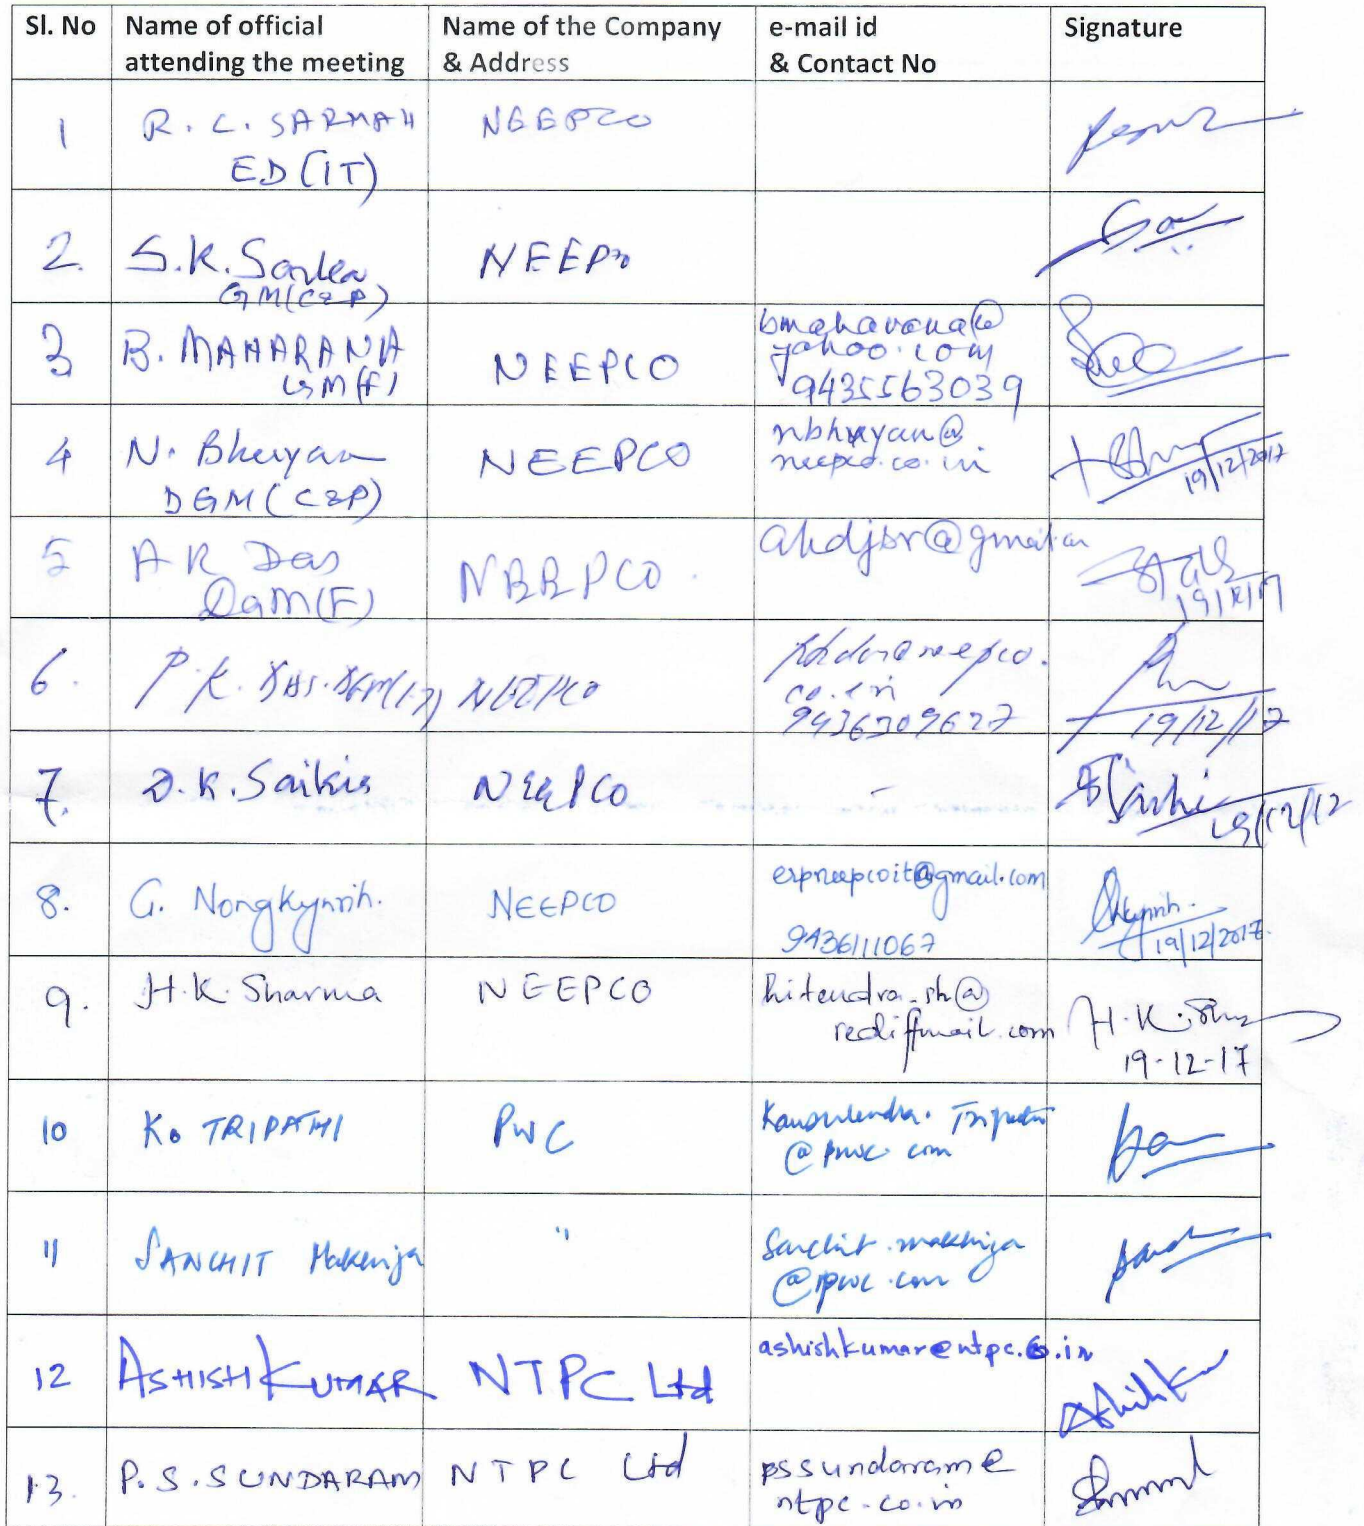 Sl. No Name of official Name of the Company e-mail id Signature
attending the meeting & Address & Contact No
1 R. C. SARMAH NEEPCO
ED (IT)
2. S.K. Sarkar NEEPCO
GM(C&P)
3 B. MAHARANA NEEPCO bmaharana@
GM(F) yahoo.com
9435563039
4 N. Bhuyan NEEPCO nbhuyan@
DGM (C&P) neepco.co.in
19/12/2017
5 A K Das NEEPCO. akdjbr@gmail.com
DGM(F)
19/12/17
6. P. K. DAS. DGM(IT) NEEPCO pkdas@neepco.
co.in
9436309627 19/12/17
7. D. K. Saikia NEEPCO -
19/12/17
8. G. Nongkynrih. NEEPCO erpneepcoit@gmail.com
9436111067 19/12/2017.
9. H.K. Sharma NEEPCO hitendra_sh@
rediffmail.com H.K.
19-12-17
10 K. TRIPATHI PwC Kaushlendra. Tripathi
@pwc.com
11 SANCHIT Makhija " Sanchit.makhija
@pwc.com
12 ASHISH KUMAR NTPC Ltd ashishkumar@ntpc.co.in
13. P.S. SUNDARAM NTPC Ltd pssundaram@
ntpc.co.in